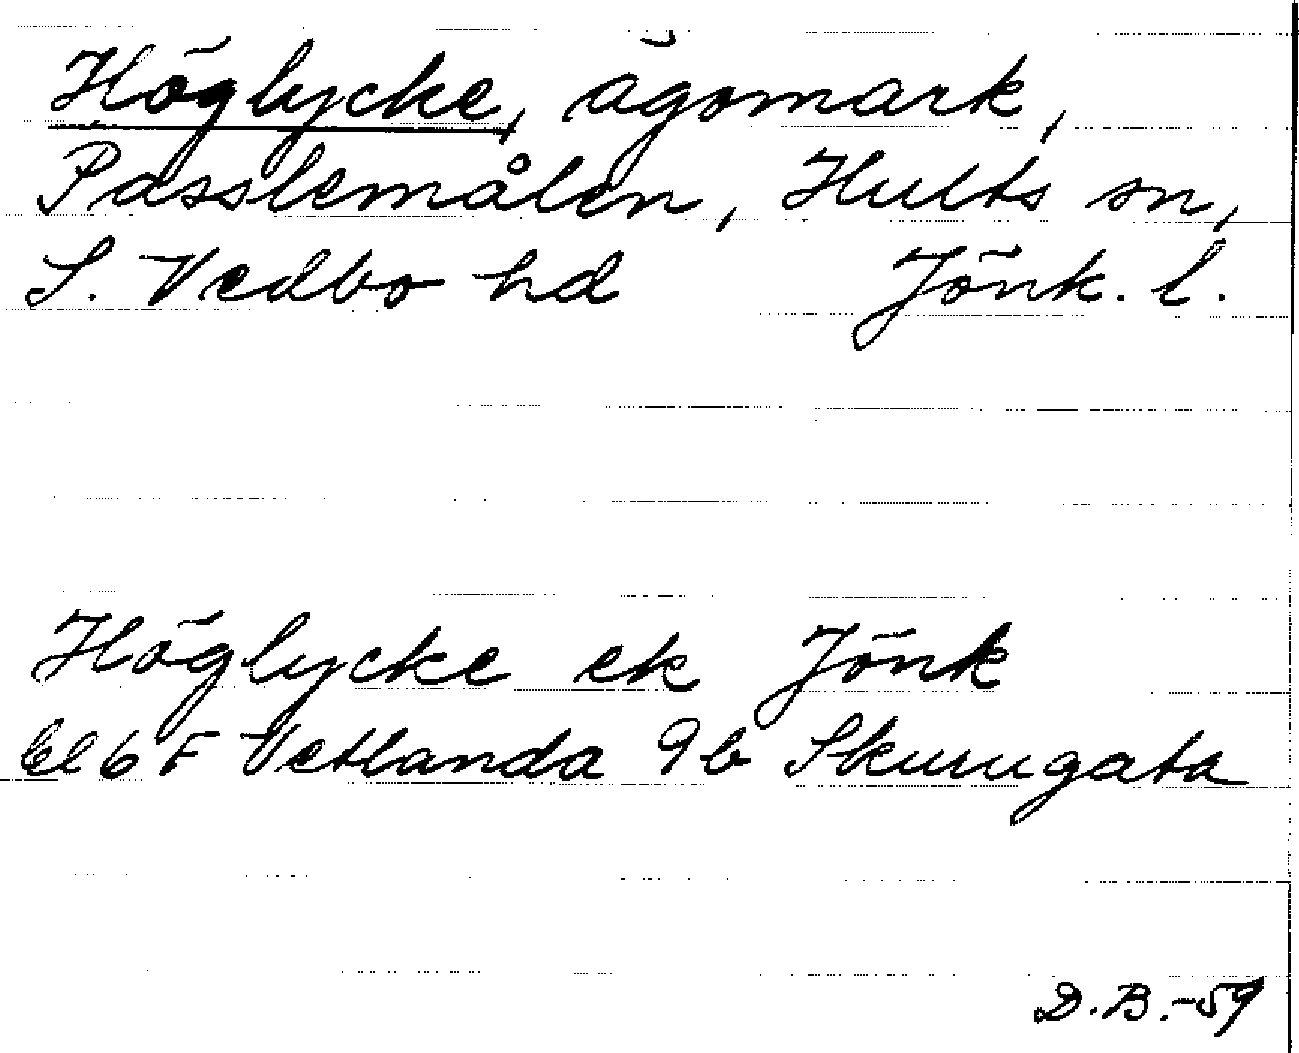 Höglycke, ägomark,
Passlemålen, Hults sn,
S. Vedbo hd Jönk. l.
Höglycke ek Jönk
6F Vetlanda 9b Skurugata
D.B.-59